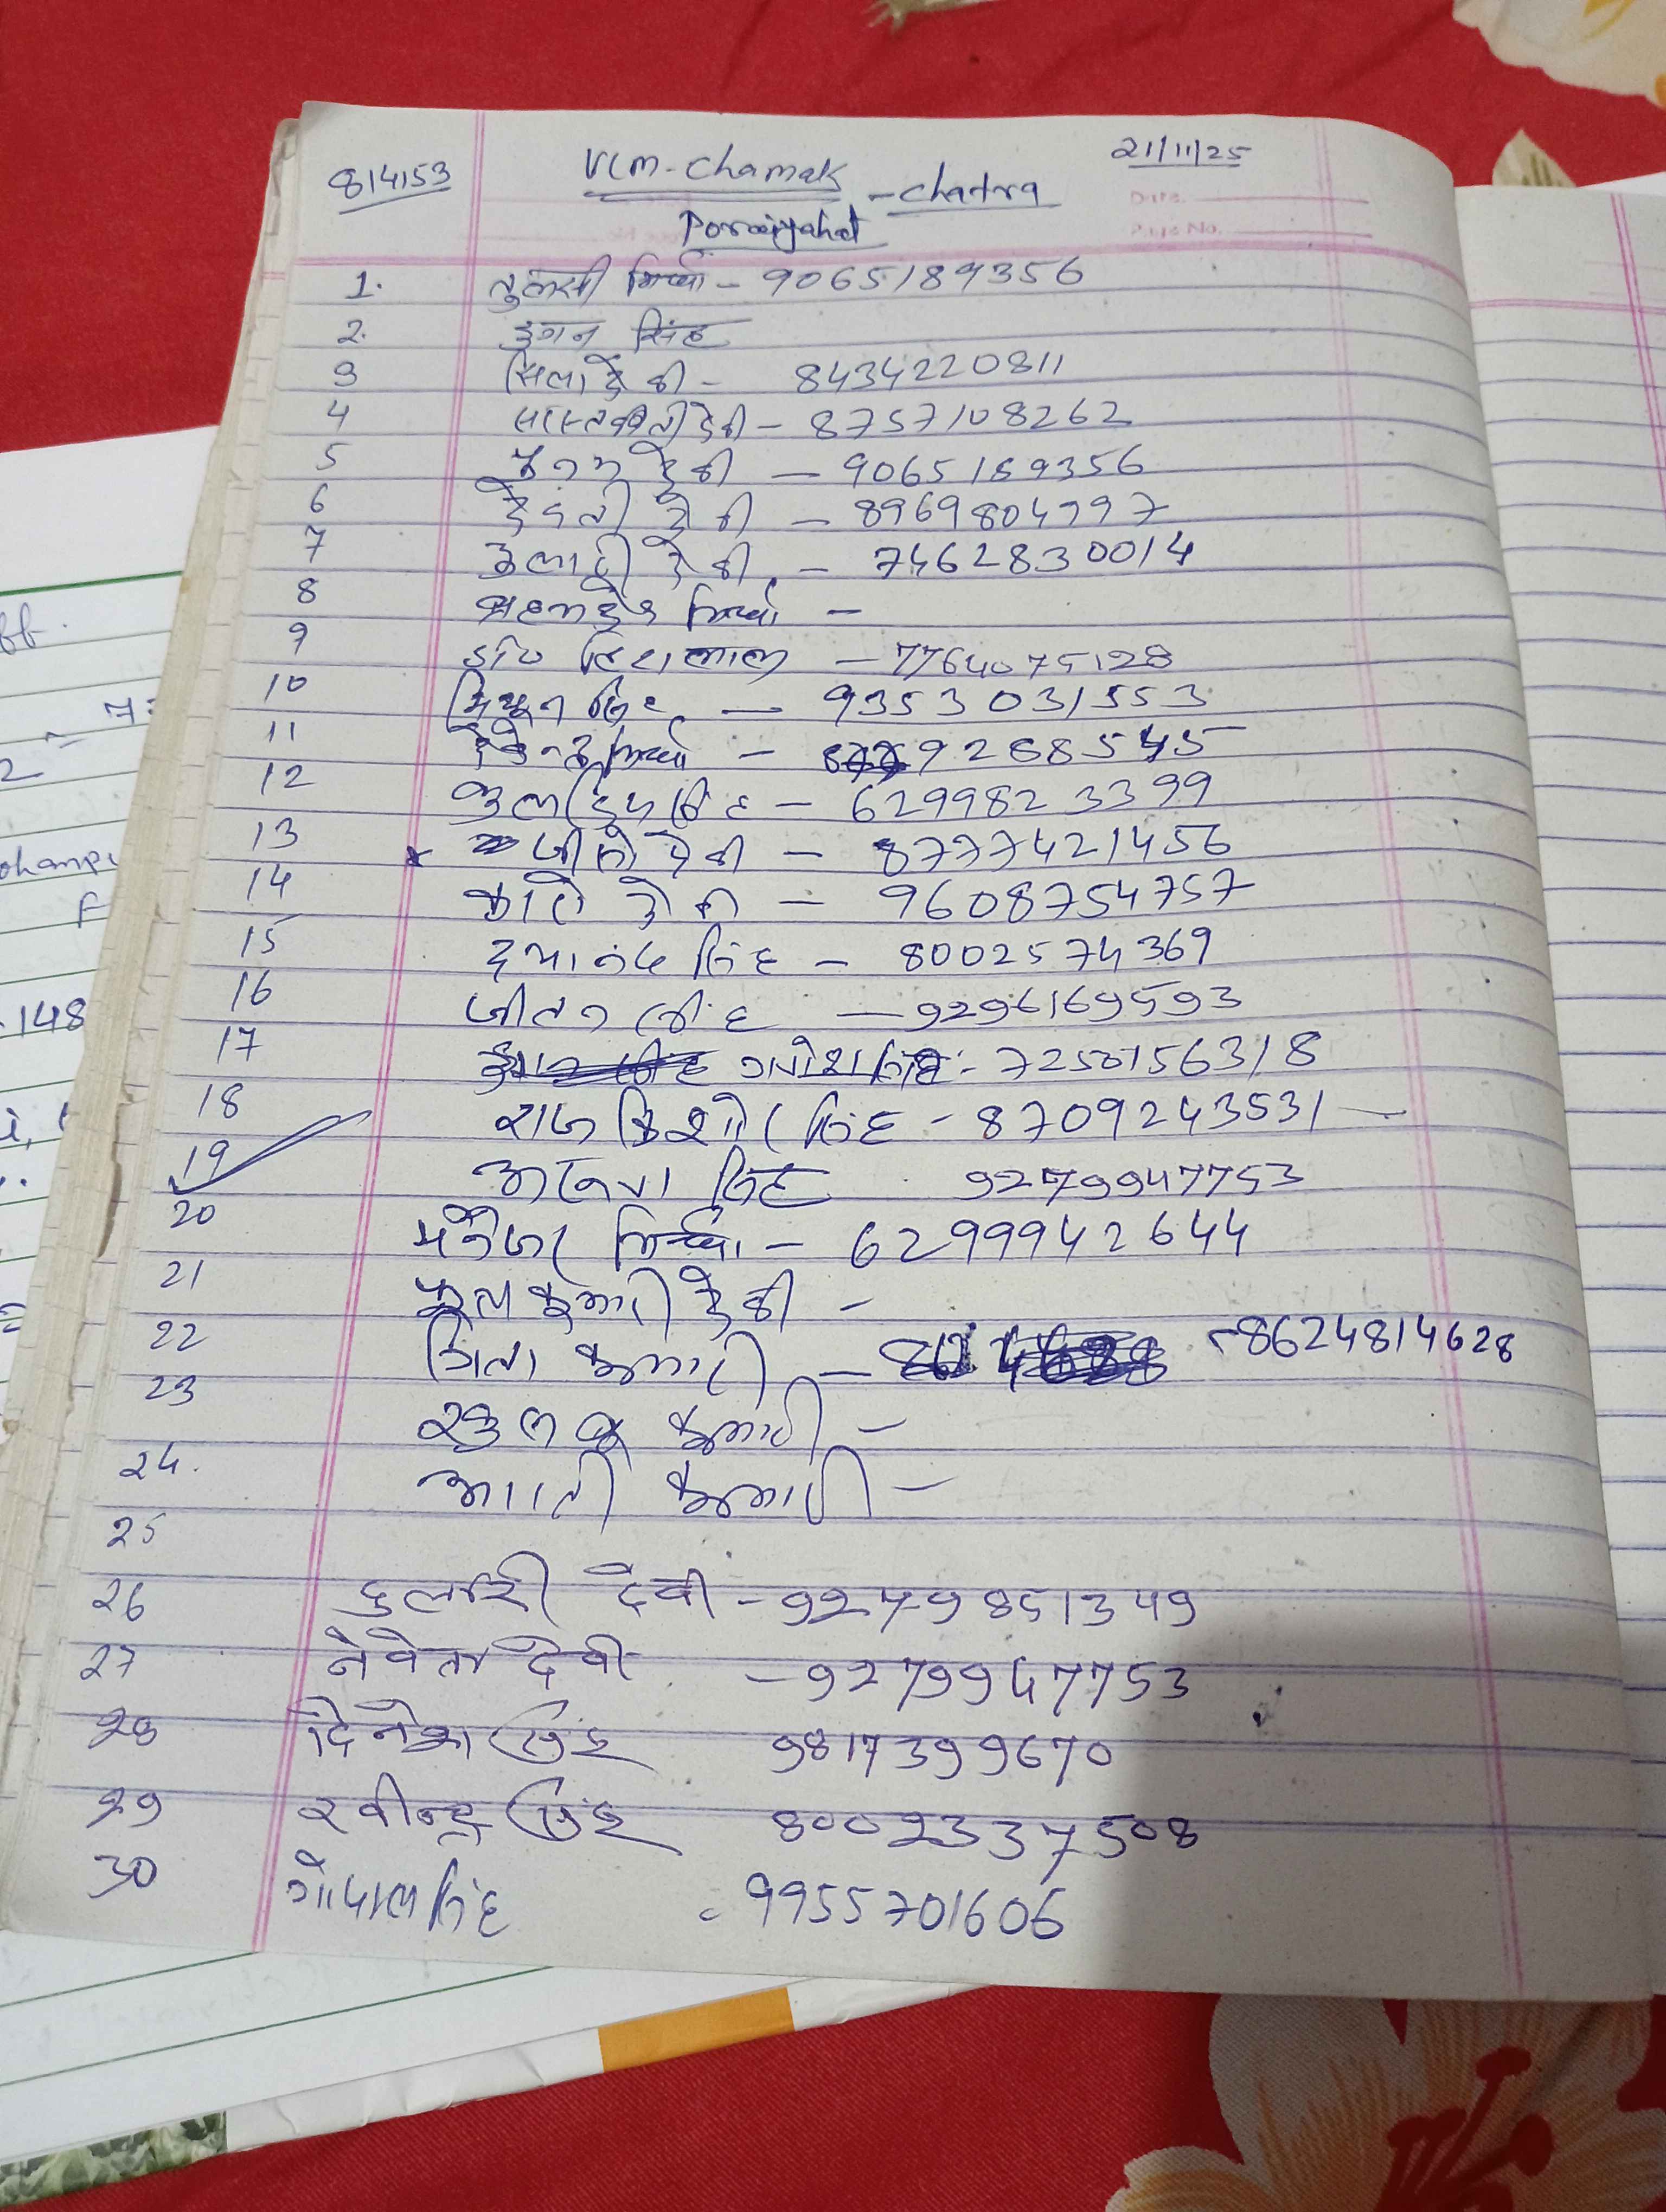 814153 VCM-Chamak - Chatra 21/11/25
Poraiyahat
Date.
Page No.
1. तुलसी मिर्धा - 9065189356
2. डुगन सिंह
3 सिला देवी - 8434220811
4 देवी - 8757108262
5 देवी - 9065189356
6 देवंती देवी - 8969804797
7 देवी - 7462830014
8 सहमदेव मिर्धा -
9 हिरालाल - 7764075128
10 मिथुन सिंह - 9353031553
11 मिर्धा - 9288545
12 कुलदिप सिंह - 6299823399
13 * जीतो देवी - 8777421456
14 देवी - 9608754757
15 दयानंद सिंह - 8002574369
16 जीतन सिंह - 9296169593
17 गणेश सिंह - 7250156318
18 राज किशोर सिंह - 8709243531
19 सिंह 9279947753
20 मनेजर मिर्धा - 6299942644
21 फुल कुमारी देवी -
22 गिता कुमारी - 8624814628
23 कुमारी -
24. आरती कुमारी -
25
26 दुलारी देवी - 9279851349
27 देवी - 9279947753
28 दिनेश सिंह 9817399670
29 रवीन्द्र सिंह 8002337508
30 गोपाल सिंह = 9955701606
148